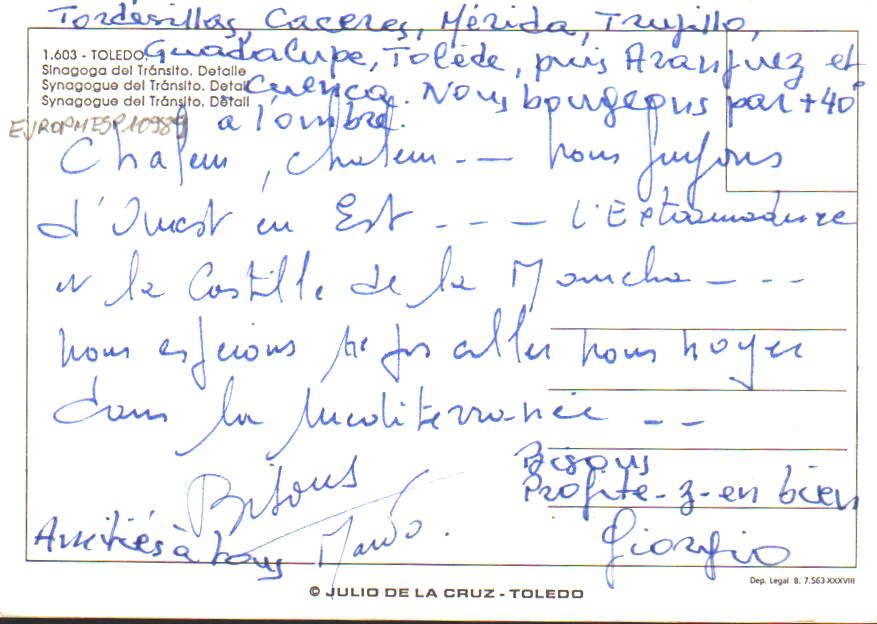 Tordesillas, Caceres, Mérida, Trujillo,
Guadalupe, Tolède, puis Aranjuez et
Cuenca. Nous bougeons par +40°
a l'ombre.
1.603 - TOLEDO.
Sinagoga del Tránsito. Detalle
Synagogue del Tránsito. Detail
Synagogue del Tránsito. Détail
EUROPMESP10989
Chaleur, chaleur -- nous fuyons
d'Ouest en Est --- l'Extramadure
et la Castille de la Mancha ---
nous espérons ne pas aller nous noyer
dans la Méditerranée --
Bisous
Bisous
Profite-z-en bien
Amitiés à tous
Giorgio
Dep. Legal B. 7.563-XXXVIII
© JULIO DE LA CRUZ - TOLEDO